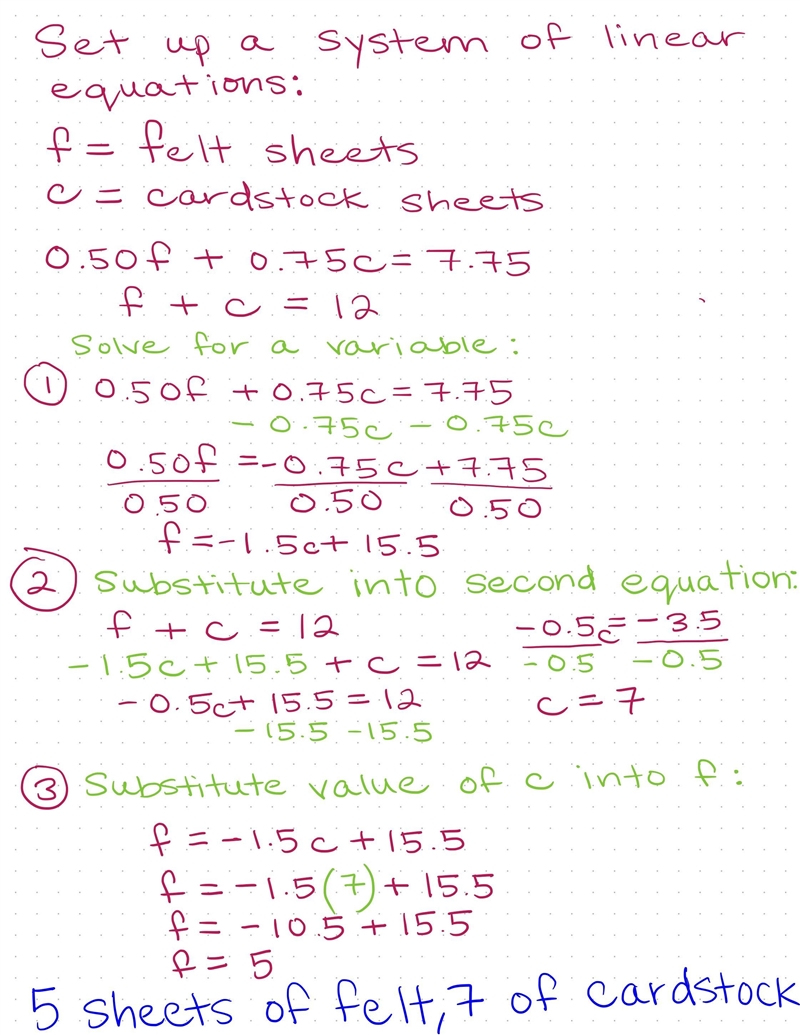 Set up a system of linear
equations:
f = felt sheets
c = cardstock sheets
0.50f + 0.75c = 7.75
f + c = 12
Solve for a variable:
① 0.50f + 0.75c = 7.75
- 0.75c - 0.75c
0.50f = -0.75c + 7.75
0.50 0.50 0.50
f = -1.5c + 15.5
② Substitute into second equation:
f + c = 12
-1.5c + 15.5 + c = 12
-0.5c + 15.5 = 12
-15.5 -15.5
-0.5c = -3.5
-0.5 -0.5
c = 7
③ Substitute value of c into f:
f = -1.5c + 15.5
f = -1.5(7) + 15.5
f = -10.5 + 15.5
f = 5
5 sheets of felt, 7 of cardstock